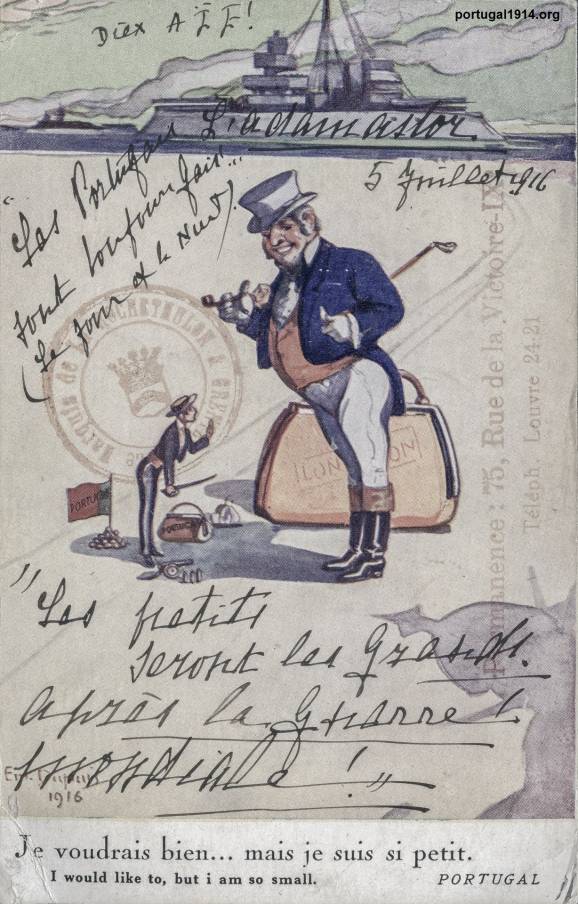 portugal1914.org
Diex A ÏE !
L'adamastor.
5 Juillet 1916
"Les Portugais
sont toujours gais"...
(Le jour et la Nuit).
PORTUGAL
LONDON
Permanence : 75, Rue de la Victoire-IX
Téléph. Louvre 24-21
"Les petits
seront les Grands.
après la Guerre !
mondiale ! "
1916
Je voudrais bien... mais je suis si petit.
I would like to, but i am so small.
PORTUGAL